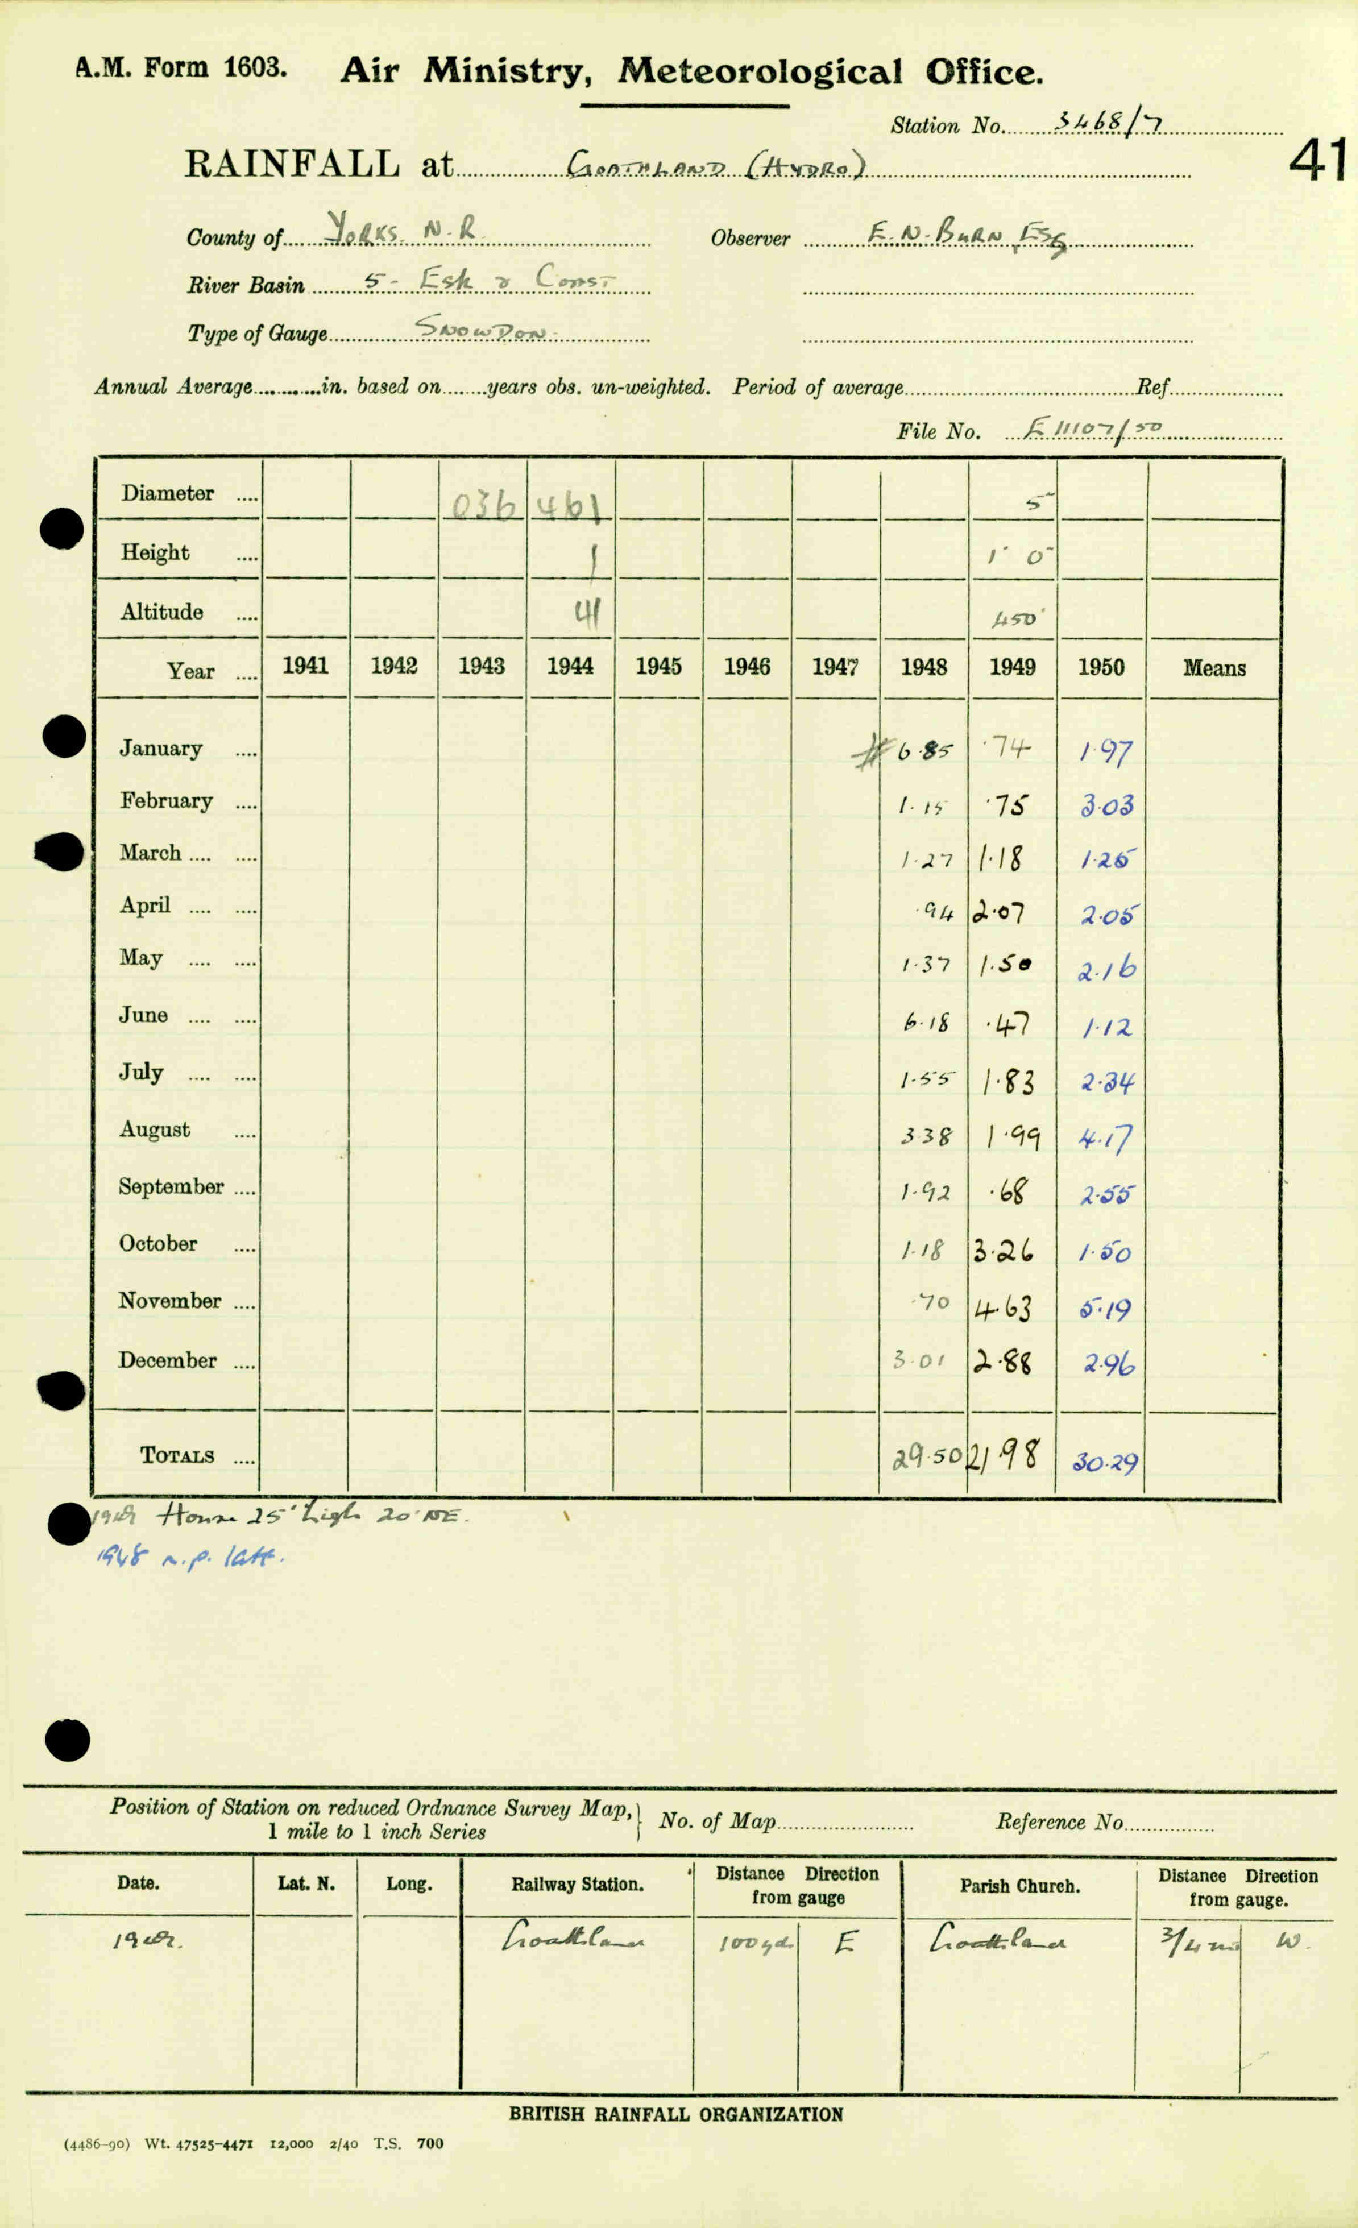 A.M. Form 1603. Air Ministry, Meteorological Office.
Station No. 3468/7
41
RAINFALL at GOATHLAND (HYDRO)
County of YORKS. N.R. Observer E.N. BURN, ESQ
River Basin 5 - Esk & Coast
Type of Gauge SNOWDON
Annual Average in. based on years obs. un-weighted. Period of average Ref.
File No. E 11107/50
Diameter 036 461 5"
Height 1 1' 0"
Altitude 41 450'
Year 1941 1942 1943 1944 1945 1946 1947 1948 1949 1950 Means
January # 6.85 .74 1.97
February 1.15 .75 3.03
March 1.27 1.18 1.25
April .94 2.07 2.05
May 1.37 1.50 2.16
June 6.18 .47 1.12
July 1.55 1.83 2.34
August 3.38 1.99 4.17
September 1.92 .68 2.55
October 1.18 3.26 1.50
November .70 4.63 5.19
December 3.01 2.88 2.96
TOTALS 29.50 21.98 30.29
House 25' high 20' NE.
1948 n.p. latt.
Position of Station on reduced Ordnance Survey Map, 1 mile to 1 inch Series } No. of Map Reference No.
Date. Lat. N. Long. Railway Station. Distance Direction from gauge Parish Church. Distance Direction from gauge.
Goathland 100 yds E Goathland 3/4 mi W.
BRITISH RAINFALL ORGANIZATION
(4486-90) Wt. 47525-4471 12,000 2/40 T.S. 700